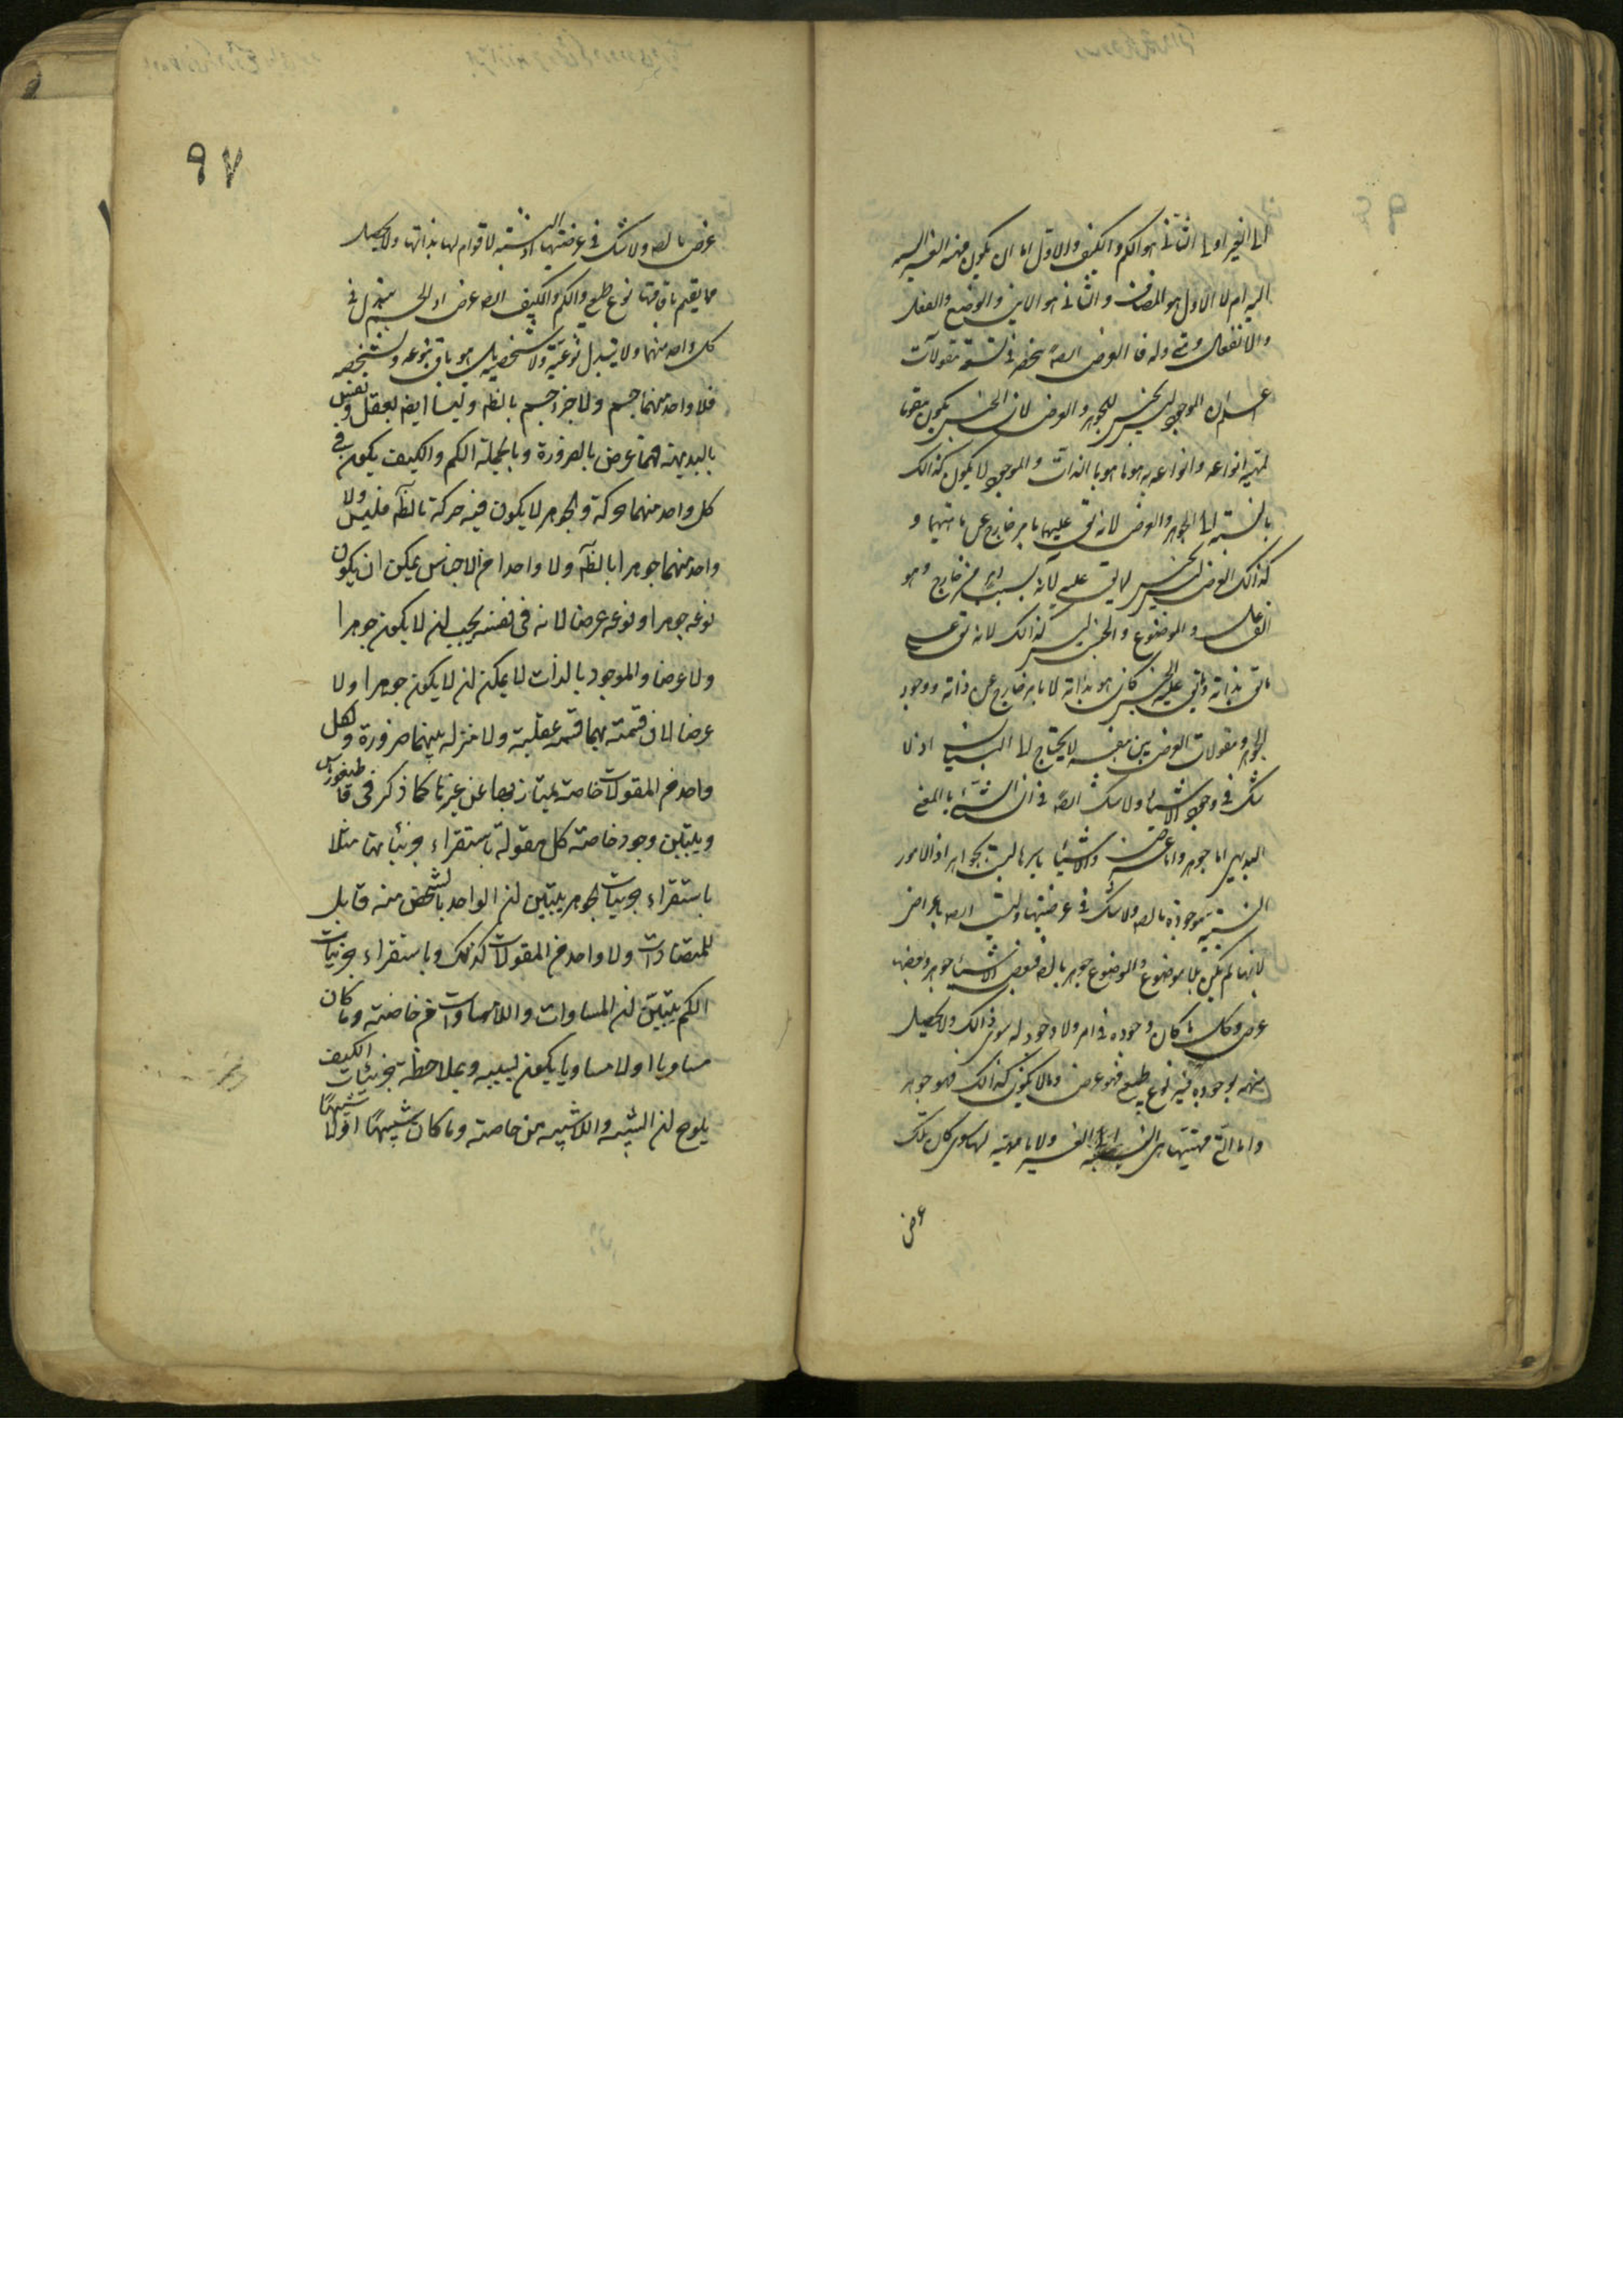 الى الغير اولا الثانى هو الكم والكيف والاول اما ان يكون
اليه ام لا الاول هو المضاف والثانى هو الاين والوضع والفعل
والانفعال ومتى وله فالعرض ايضا منحصر فى تسعة مقولات
اعلم ان الموجود ليس بجنس للجوهر والعرض لان الجنس يكون مقوما
لمهية انواعه وانواعه به هو ما هو بالذات والموجود لا يكون كذالك
بالنسبة الى الجوهر والعرض لانه يق عليهما بامر خارج عن ماهيتهما و
كذالك العرض ليس بجنس لما يق عليه لانه بسبب امر خارج وهو
الفاعل والموضوع والجنس ليس كذالك لانه يق على
ما يق بذاته وما يق عليه الجنس كان هو بذاته لا بامر خارج عن ذاته ووجود
الجوهر ومقولات العرض بين بنفسه لا يحتاج الى البيان اذ لا
شك فى وجود الاشياء ولا شك ايضا فى ان الشئ بالمعنى
البديهى اما جوهر واما عرض والاشياء باسرها ليست بجواهر اذ الامور
النسبية موجودة بالضرورة ولا شك فى عرضيتها وليست ايضا باعراض
لانها لم يكن بلا موضوع والموضوع جوهر بالضرورة فبعض الاشياء جوهر وبعضها
عرض وكل ما كان وجوده فى امر ولا وجود له سوى ذالك ولا يحصل
منهم بوجوده فيه نوع طبيعى فهو عرض وما لا يكون كذالك فهو جوهر
واما التى مهيتها هى النسبة الى الغير ولا ماهية لها سوى كان تلك
عرض
٩٧
عرض بالضرورة ولا شك فى عرضيتها اذ النسبة لا قوام لها بذاتها ولا يحصل
مما يقيم باقامتها نوع طبيعى والكم والكيف ايضا عرض اذ الجسم يتبدل فى
كل واحد منهما ولا يتبدل نوعيته ولا شخصيته بل هو باق بنوعه وبشخصه
فلا واحد منهما جسم ولا جزء جسم بالظه وليسا ايضا بعقل ونفس
بالبديهة فهما عرض بالضرورة وبالجملة الكم والكيف يكون فى
كل واحد منهما حركة والجوهر لا يكون فيه حركة بالظه فليس ولا
واحد منهما جوهرا بالظه ولا واحدا من الاجناس يمكن ان يكون
نوعه جوهرا ونوعه عرضا لانه فى نفسه يجب ان لا يكون جوهرا
ولا عرضا والموجود بالذات لا يمكن ان لا يكون جوهرا ولا
عرضا لان قسمته بهما قسمة عقلية ولا منزلة بينهما ضرورة ولكل
واحد من المقولات خاصة يمتاز بها عن غيرها كما ذكر فى قاطيغورياس
ويتبين وجود خاصة كل مقولة باستقراء جزئياتها مثلا
باستقراء جزئيات الجوهر يتبين ان الواحد بالشخص منه قابل
للمتضادات ولا واحد من المقولات كذلك وباستقراء جزئيات
الكم يتبين ان المساوات واللامساوات من خاصته وما كان
مساويا او لا مساويا يكون بسببه وبملاحظة جزئيات الكيف
يلوح ان الشبيه واللاشبيه من خاصته وما كان شبيها او لا شبيها